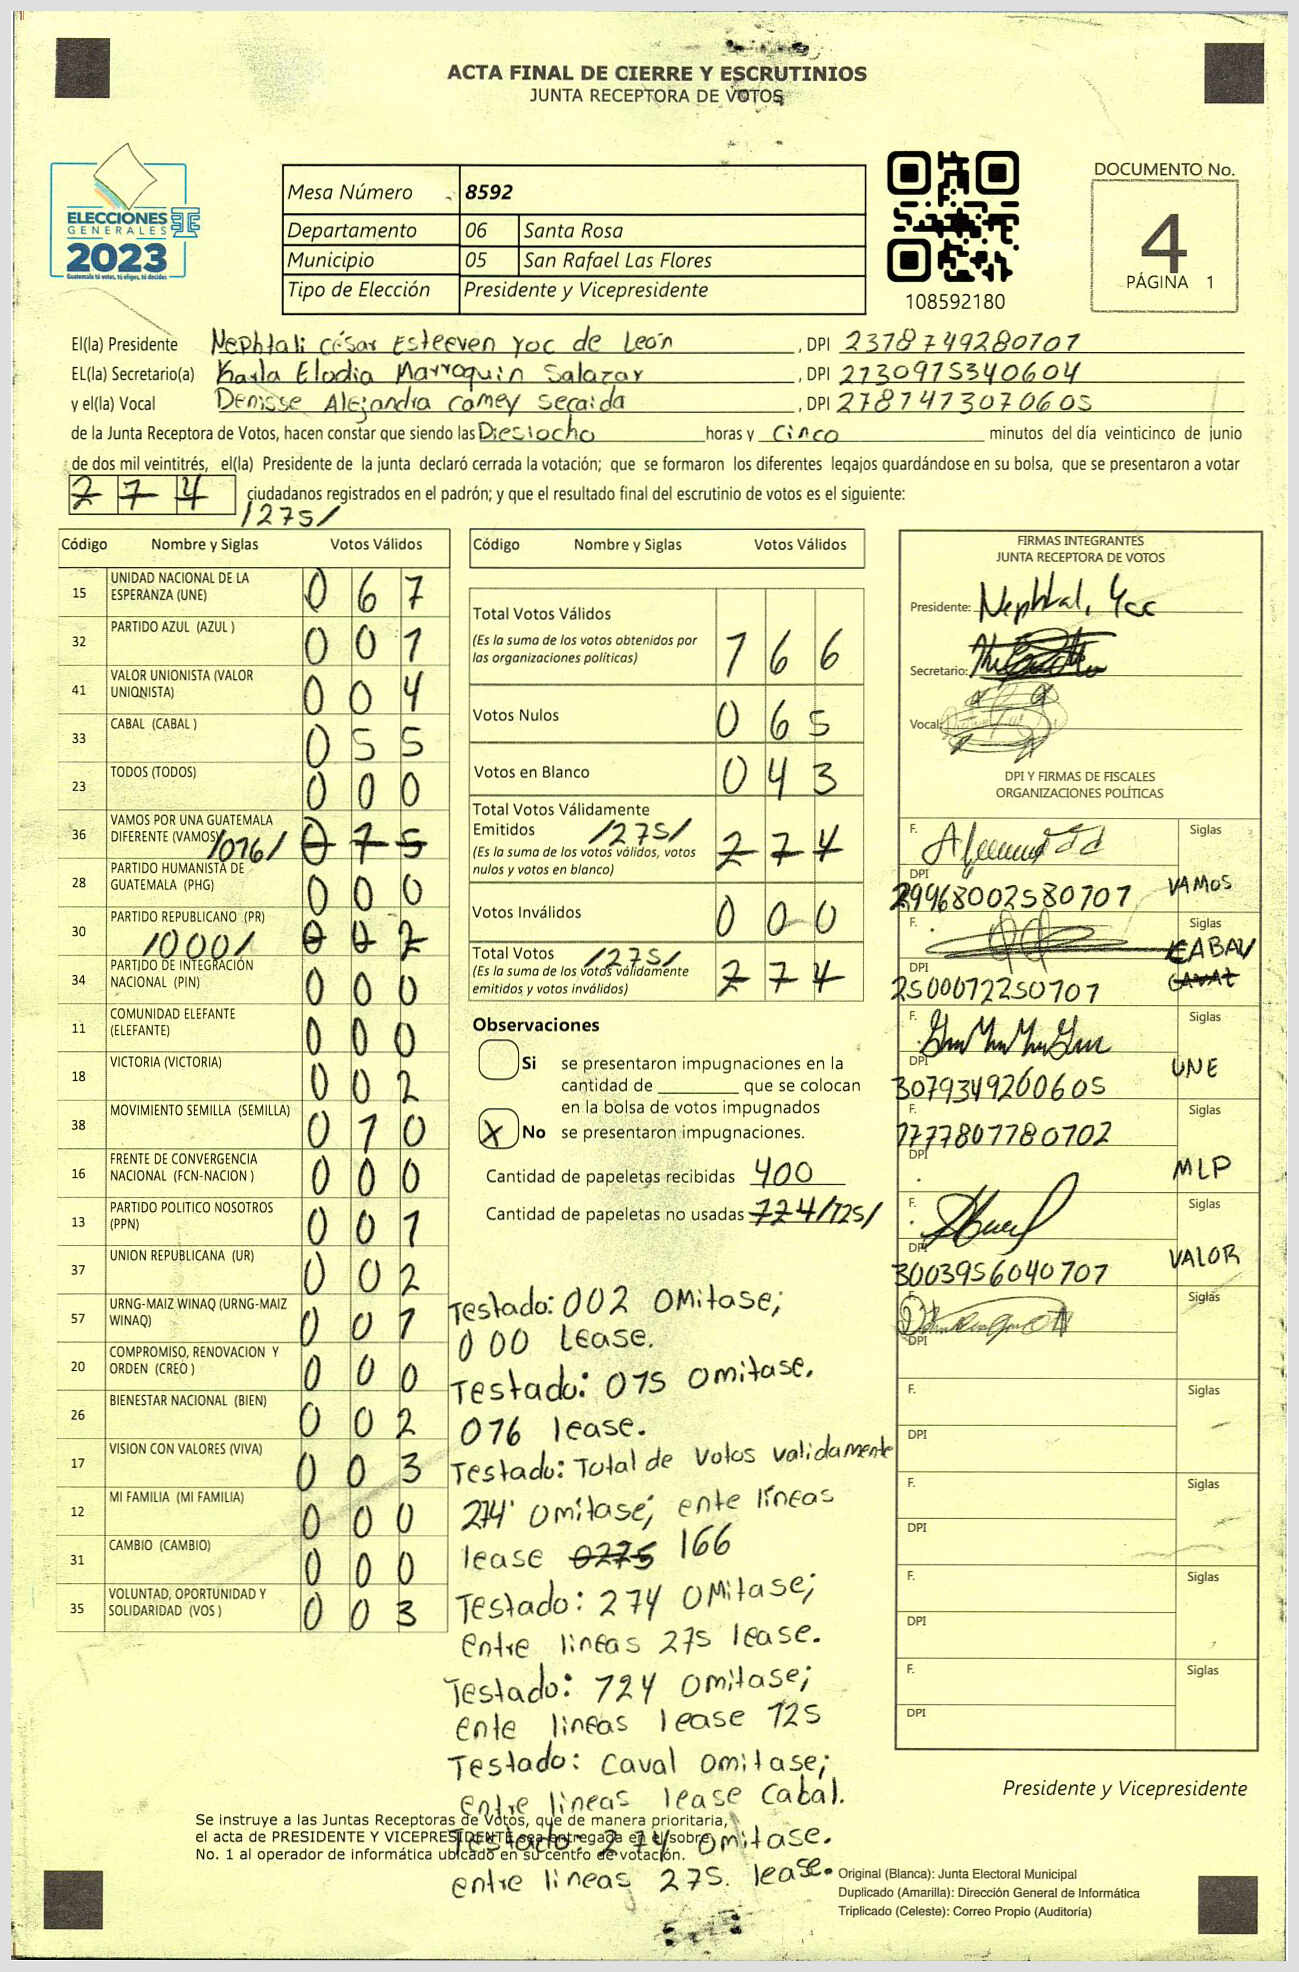 ACTA FINAL DE CIERRE Y ESCRUTINIOS
JUNTA RECEPTORA DE VOTOS
ELECCIONES
GENERALES
2023
Guatemala tú votas, tú eliges, tú decides
Mesa Número 8592
Departamento 06 Santa Rosa
Municipio 05 San Rafael Las Flores
Tipo de Elección Presidente y Vicepresidente
108592180
DOCUMENTO No.
4
PÁGINA 1
El(la) Presidente Nephtali César Esteeven Yoc de León, DPI 2378749280707
EL(la) Secretario(a) Karla Elodia Marroquin Salazar, DPI 2730975340604
y el(la) Vocal Denisse Alejandra Camey Secaida, DPI 2787473070605
de la Junta Receptora de Votos, hacen constar que siendo las Diesiocho horas y Cinco minutos del día veinticinco de junio
de dos mil veintitrés, el(la) Presidente de la junta declaró cerrada la votación; que se formaron los diferentes legajos guardándose en su bolsa, que se presentaron a votar
274 ciudadanos registrados en el padrón; y que el resultado final del escrutinio de votos es el siguiente:
/275/
Código Nombre y Siglas Votos Válidos
15 UNIDAD NACIONAL DE LA ESPERANZA (UNE) 067
32 PARTIDO AZUL (AZUL ) 001
41 VALOR UNIONISTA (VALOR UNIONISTA) 004
33 CABAL (CABAL ) 055
23 TODOS (TODOS) 000
36 VAMOS POR UNA GUATEMALA DIFERENTE (VAMOS) /016/ 075
28 PARTIDO HUMANISTA DE GUATEMALA (PHG) 000
30 PARTIDO REPUBLICANO (PR) /000/ 002
34 PARTIDO DE INTEGRACIÓN NACIONAL (PIN) 000
11 COMUNIDAD ELEFANTE (ELEFANTE) 000
18 VICTORIA (VICTORIA) 002
38 MOVIMIENTO SEMILLA (SEMILLA) 010
16 FRENTE DE CONVERGENCIA NACIONAL (FCN-NACION ) 000
13 PARTIDO POLITICO NOSOTROS (PPN) 001
37 UNION REPUBLICANA (UR) 002
57 URNG-MAIZ WINAQ (URNG-MAIZ WINAQ) 001
20 COMPROMISO, RENOVACION Y ORDEN (CREO ) 000
26 BIENESTAR NACIONAL (BIEN) 002
17 VISION CON VALORES (VIVA) 003
12 MI FAMILIA (MI FAMILIA) 000
31 CAMBIO (CAMBIO) 000
35 VOLUNTAD, OPORTUNIDAD Y SOLIDARIDAD (VOS ) 003
Código Nombre y Siglas Votos Válidos
Total Votos Válidos 166
(Es la suma de los votos obtenidos por
las organizaciones políticas)
Votos Nulos 065
Votos en Blanco 043
Total Votos Válidamente
Emitidos /275/ 274
(Es la suma de los votos válidos, votos
nulos y votos en blanco)
Votos Inválidos 000
Total Votos /275/ 274
(Es la suma de los votos válidamente
emitidos y votos inválidos)
Observaciones
Si se presentaron impugnaciones en la
cantidad de ________ que se colocan
en la bolsa de votos impugnados
X No se presentaron impugnaciones.
Cantidad de papeletas recibidas 400
Cantidad de papeletas no usadas 724/125/
Testado: 002 OMitase;
000 Lease.
Testado: 075 Omitase.
076 lease.
Testado: Total de Votos validamente
274 Omitase; ente líneas
lease 0275 166
Testado: 274 OMitase;
entre lineas 275 lease.
Testado: 724 Omitase;
ente lineas lease 125
Testado: Caval Omitase;
entre lineas lease Cabal.
Testado: 274 Omitase.
entre lineas 275. lease.
FIRMAS INTEGRANTES
JUNTA RECEPTORA DE VOTOS
Presidente: Nephtal, Yoc
Secretario:
Vocal:
DPI Y FIRMAS DE FISCALES
ORGANIZACIONES POLÍTICAS
F. Siglas
DPI 29968002580707 VAMOS
F. Siglas CABAL
DPI 2500072250707 CAVAL
F. Siglas
DPI 3079349260605 UNE
F. Siglas
1777807780702
DPI MLP
F. Siglas
DPI 3003956040707 VALOR
F. Siglas
DPI
F. Siglas
DPI
F. Siglas
DPI
F. Siglas
DPI
F. Siglas
DPI
Presidente y Vicepresidente
Se instruye a las Juntas Receptoras de Votos, que de manera prioritaria,
el acta de PRESIDENTE Y VICEPRESIDENTE sea entregada en el sobre
No. 1 al operador de informática ubicado en su centro de votación.
Original (Blanca): Junta Electoral Municipal
Duplicado (Amarilla): Dirección General de Informática
Triplicado (Celeste): Correo Propio (Auditoría)